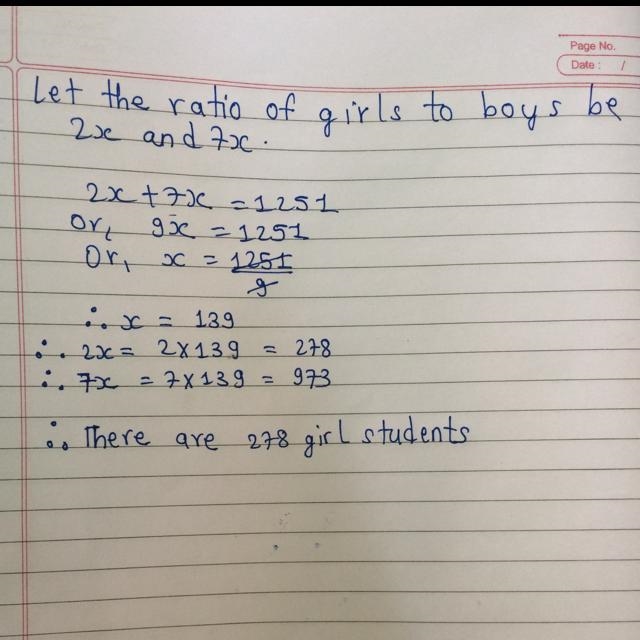 Page No.
Date : /
Let the ratio of girls to boys be
2x and 7x.
2x + 7x = 1251
Or, 9x = 1251
Or, x = 1251/9
∴ x = 139
∴ 2x = 2 × 139 = 278
∴ 7x = 7 × 139 = 973
∴ There are 278 girl students